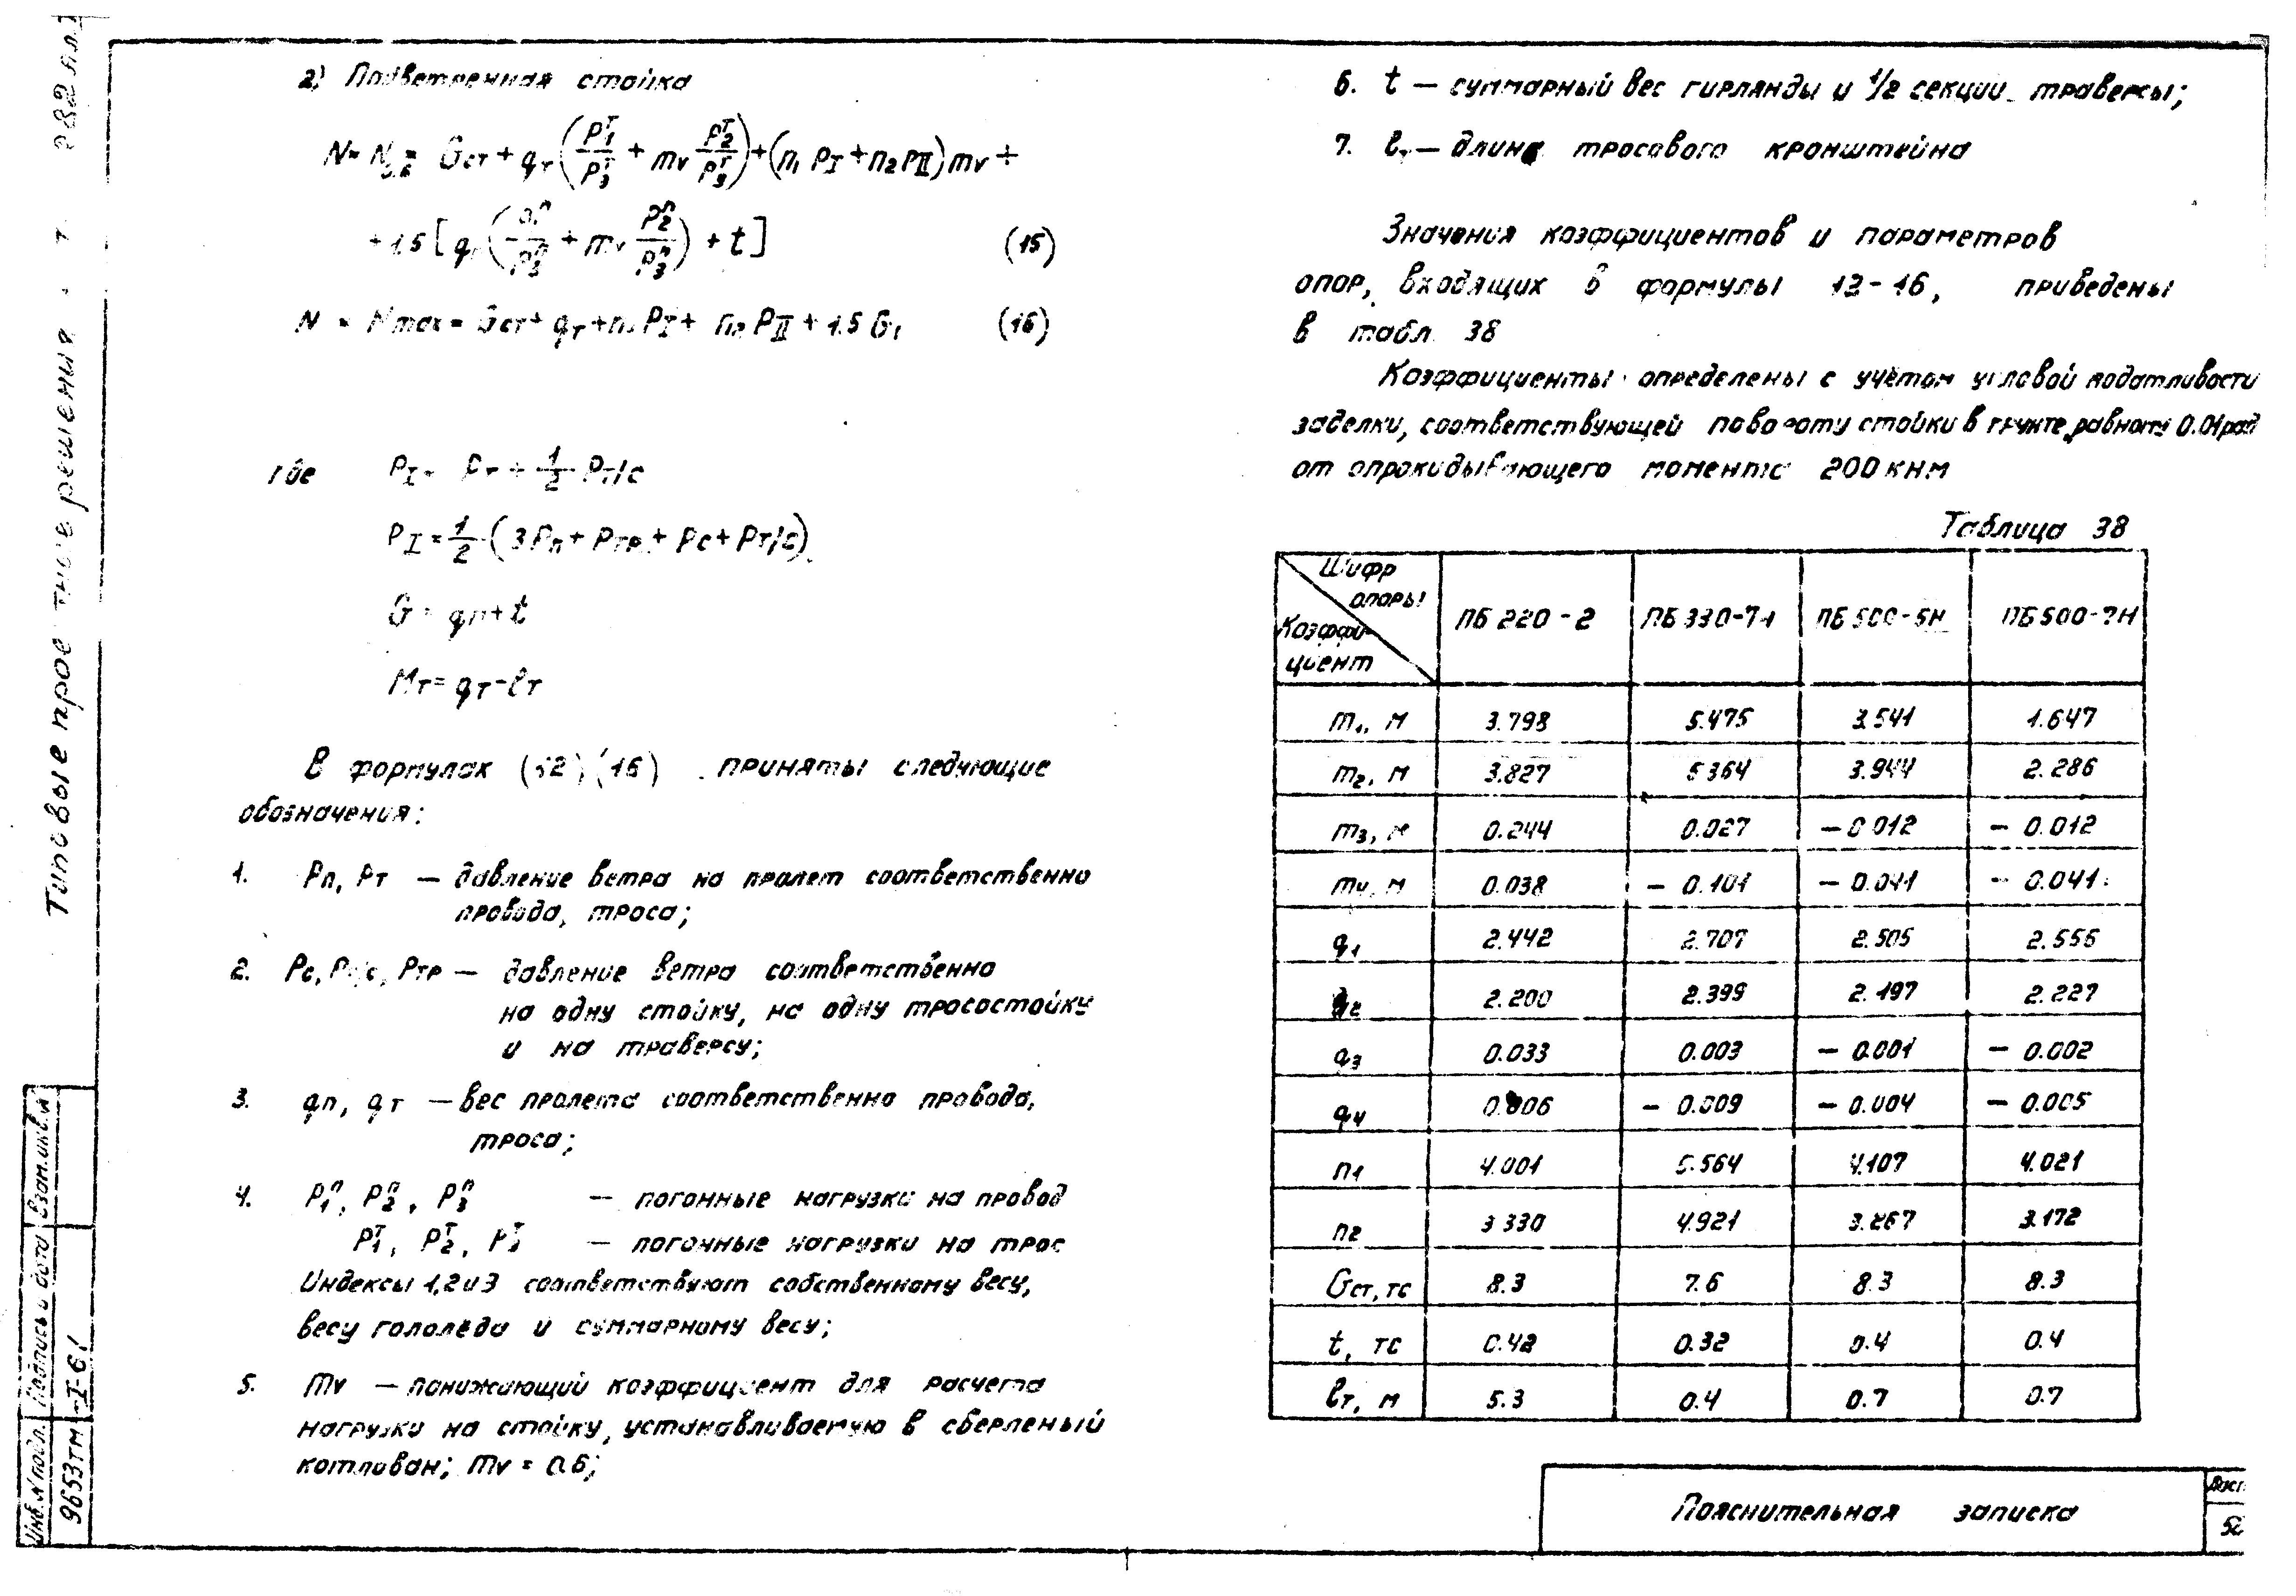 2) Подветренная стойка
N = N = Gст + qт (P₁ᵀ/P₃ᵀ + mv P₂ᵀ/P₃ᵀ) + (n₁ PI + n₂ PII) mv +
+ 1.5 [qп (P₁ⁿ/P₃ⁿ + mv P₂ⁿ/P₃ⁿ) + t] (15)
N = Nmax = Gст + qт + n₁ PI + n₂ PII + 1.5 G₁ (16)
где PI = Pт + 1/2 Pт/с
PI = 1/2 (3Pп + Pтр + Pс + Pт/с)
G = qп + t
Mт = qт - ℓт
В формулах (12) (16) приняты следующие
обозначения:
1. Pп, Pт — давление ветра на пролет соответственно
провода, троса;
2. Pс, Pт/с, Pтр — давление ветра соответственно
на одну стойку, на одну тросостойку
и на траверсу;
3. qп, qт — вес пролета соответственно провода,
троса;
4. P₁ⁿ, P₂ⁿ, P₃ⁿ — погонные нагрузки на провод
P₁ᵀ, P₂ᵀ, P₃ᵀ — погонные нагрузки на трос
Индексы 1, 2 и 3 соответствуют собственному весу,
весу гололеда и суммарному весу;
5. mv — понижающий коэффициент для расчета
нагрузки на стойку, устанавливаемую в сверленый
котлован; mv = 0.6;
6. t — суммарный вес гирлянды и 1/2 секции траверсы;
7. ℓт — длина тросового кронштейна
Значения коэффициентов и параметров
опор, входящих в формулы 12-16, приведены
в табл. 38
Коэффициенты определены с учётом угловой податливости
заделки, соответствующей повороту стойки в грунте, равному 0.01 рад
от опрокидывающего момента 200 кнм
Таблица 38
Шифр опоры Коэффициент ПБ 220-2 ПБ 330-7н ПБ 500-5н ПБ 500-7н
m₁, м 3.798 5.475 3.541 1.647
m₂, м 3.827 5.364 3.944 2.286
m₃, м 0.244 0.027 — 0.012 — 0.012
m₄, м 0.038 — 0.101 — 0.041 — 0.041
q₁ 2.442 2.707 2.505 2.556
q₂ 2.200 2.399 2.197 2.227
q₃ 0.033 0.003 — 0.001 — 0.002
q₄ 0.006 — 0.009 — 0.004 — 0.005
n₁ 4.001 5.564 4.107 4.021
n₂ 3.330 4.921 3.267 3.172
Gст, тс 8.3 7.6 8.3 8.3
t, тс 0.42 0.32 0.4 0.4
ℓт, м 5.3 0.4 0.7 0.7
Пояснительная записка
Лист
52
Типовые проектные решения
Инв. № подл. Подпись и дата Взам. инв. №
9653тм-I-61